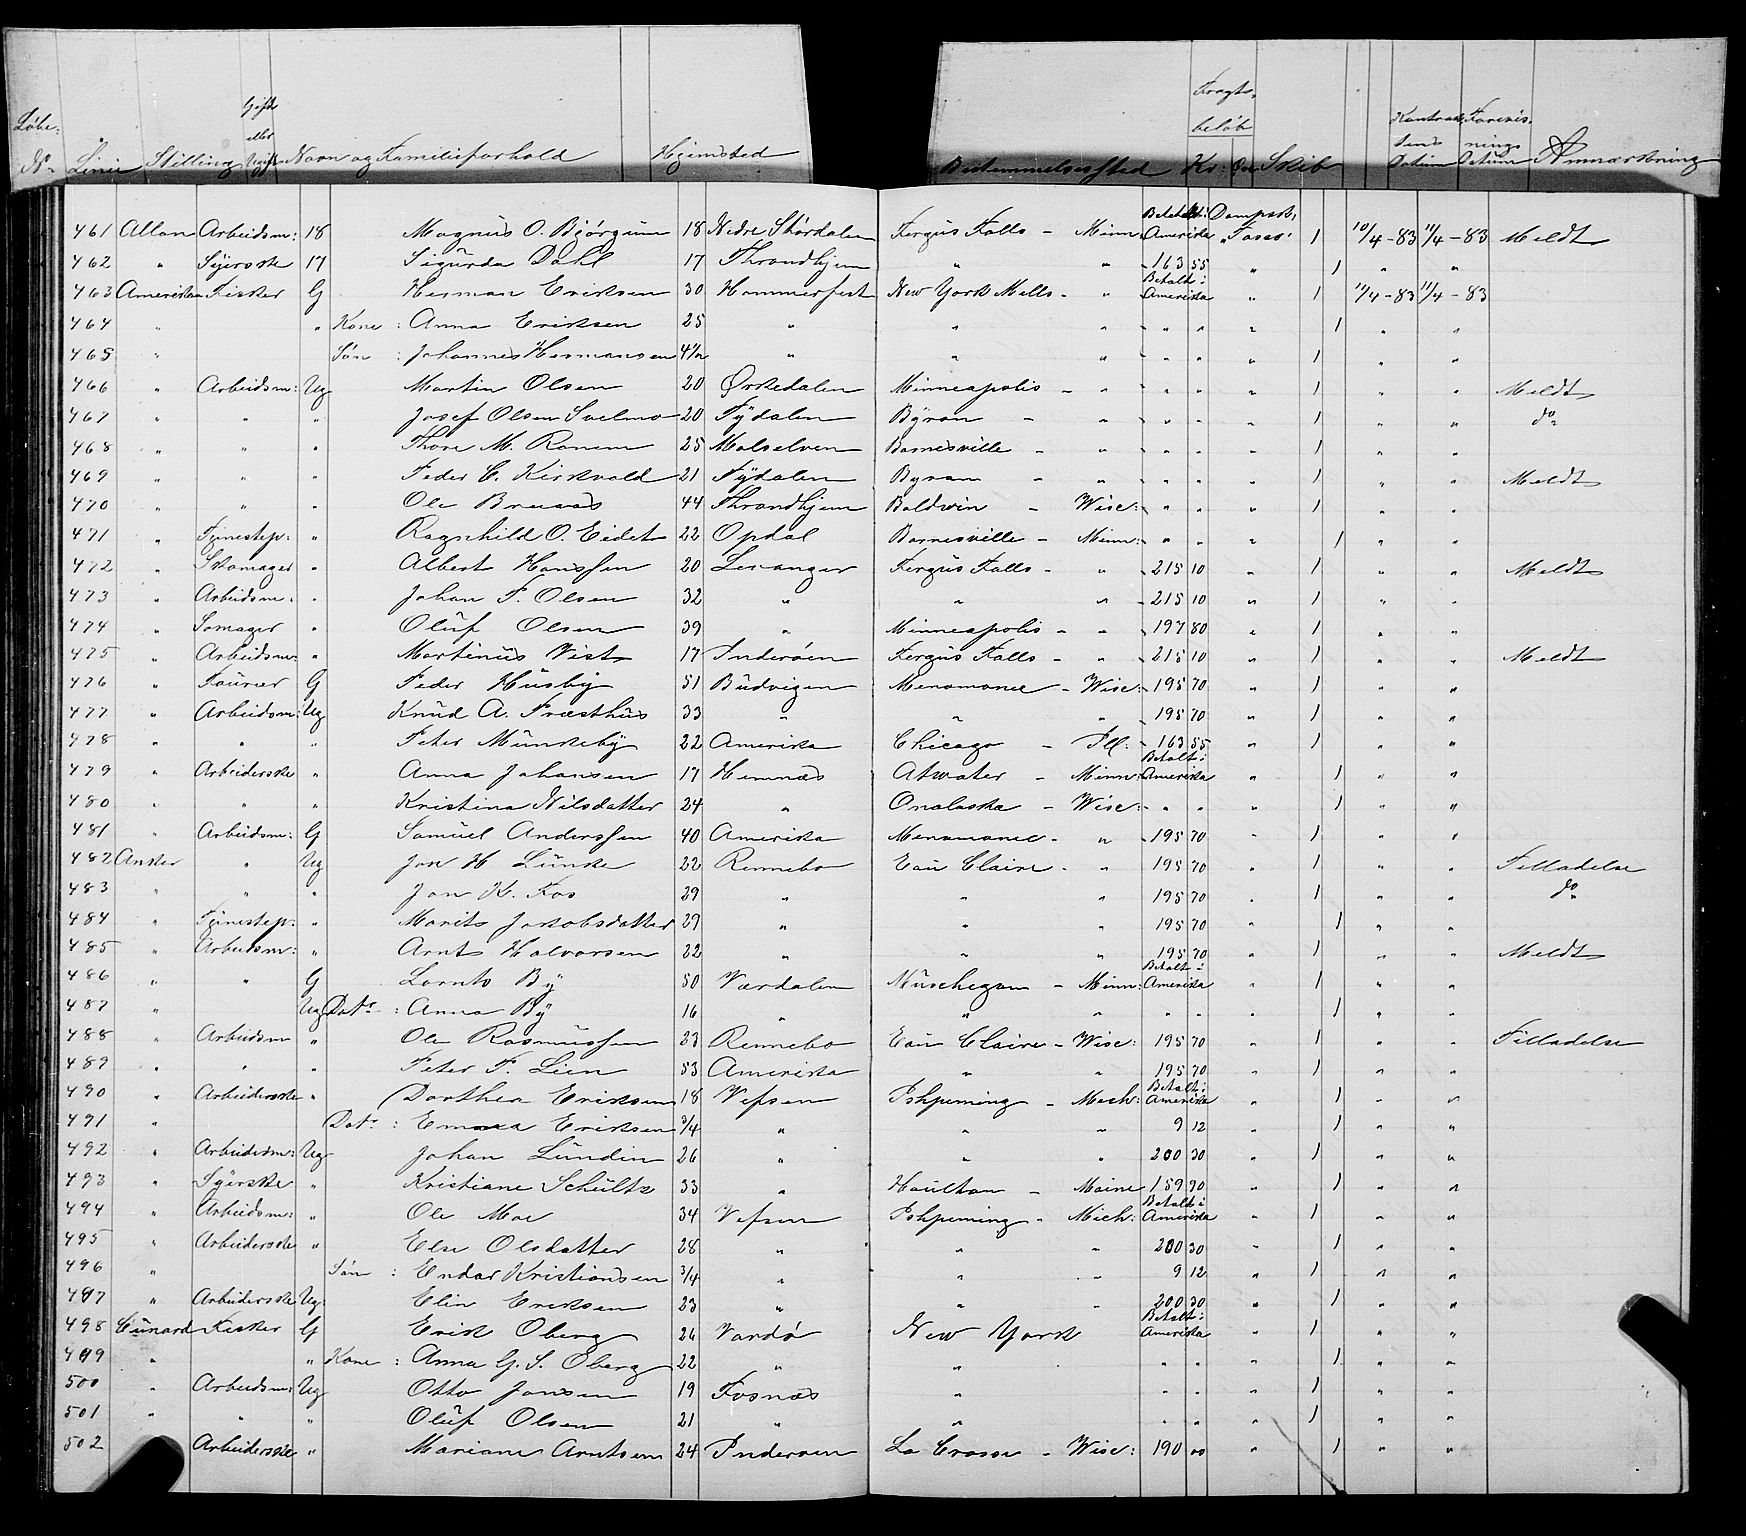 Løbe- N⁰ Linie Stilling Gift eller Ugift Navn og Familieforhold Hjemsted Bestemmelsessted Fragtbeløb Kr: Øre Skib Datum Datum Anmærkning
461 Allan Arbeidsm: 18 Magnus O. Bjørgum 18 Nedre Størdalen Fergus Falls - Minn: Betalt i Amerika Dampsk. "Tasso" 1 10/4-83 11/4-83 Meldt
462 " Syerske 17 Sigurda Dahl 17 Throndhjem " " 163 55 " 1 " "
463 Amerikan Fisker G Herman Eriksen 30 Hammerfest New York Mills - " Betalt i Amerika " 1 11/4-83 11/4-83
464 " " Kone: Anna Eriksen 25 " " " " " " 1 " "
465 " Søn: Johannes Hermansen 4 1/2 " " " " " " 1 " "
466 " Arbeidsm: Ug Martin Olsen 20 Ørkedalen Minneapolis - " " " " 1 " " Meldt
467 " " " Josef Olsen 20 Tydalen Byron - " " " " 1 " " do
468 " " " Thore M. Ronem 25 Malselven Barnesville - " " " " 1 " "
469 " " " Peder C. Kirkvold 21 Tydalen Byron " " " " " 1 " " Meldt
470 " " " Ole Bruaas 44 Throndhjem Baldwin - Wisc: " " " 1 " "
471 " Tjenestep: " Ragnhild O. Eidet 22 Opdal Barnesville - Minn: " " " 1 " "
472 " Skomager " Albert Hanssen 20 Levanger Fergus Falls - " 215 10 " 1 " " Meldt
473 " Arbeidsm: " Johan F. Olsen 32 " " " 215 10 " 1 " "
474 " Somager " Oluf Olsen 39 " Minneapolis - " 197 80 " 1 " "
475 " Arbeidsm: " Martinus Vist 17 Inderøen Fergus Falls - " 215 10 " 1 " " Meldt
476 " G Peder Husby 51 Budvigen Menomonee - Wisc: 195 70 " 1 " "
477 " Arbeidsm: Ug Knud A. Præsthus 33 " " " 195 70 " 1 " "
478 " " " Peter Munkeby 22 Amerika Chicago - Ill: 163 55 " 1 " "
479 " Arbeiderske " Anna Johansen 17 Hemnæs Atwater - Minn: Betalt i Amerika " 1 " "
480 " " " Kristina Nilsdatter 24 " Onalaska - Wisc: " " " 1 " "
481 " Arbeidsm: G Samuel Anderssen 40 Amerika Menomonee - " 195 70 " 1 " "
482 Anker " Ug Jon H Lunke 22 Rennebo Eau Claire - " 195 70 " 1 " " Filladelse
483 " " " Jon K. Fos 29 " " " 195 70 " 1 " " do
484 " Tjenestep: " Marit Jakobsdatter 29 " " " 195 70 " 1 " "
485 " Arbeidsm: " Arnt Halvorsen 32 " " " 195 70 " 1 " " Meldt
486 " " G Lornts By 50 Værdalen Muschegon - Minn: Betalt i Amerika " 1 " "
487 " Ug Datr: Anna By 16 " " " " " " 1 " "
488 " Arbeidsm " Ole Rasmussen 23 Rennebo Eau Claire - Wisc: 195 70 " 1 " " Filladelse
489 " " " Peter F. Lien 53 Amerika " " 195 70 " 1 " "
490 " Arbeiderske " Dorthea Eriksen 18 Vefsen Ishpeming - Mich: Betalt i Amerika " 1 " "
491 " Datr: Emma Eriksen 3/4 " " " 9 12 " 1 " "
492 " Arbeidsm: Ug Johan Lundin 26 " " " 200 30 " 1 " "
493 " Syerske " Kristiane Schultz 33 " Houlton - Maine 159 90 " 1 " "
494 " Arbeidsm: " Ole Moe 34 Vefsen Ishpeming - Mich: Betalt i Amerika " 1 " "
495 " Arbeiderske " Else Olsdatter 28 " " " 200 30 " 1 " "
496 " Søn: Endar Kristiansen 3/4 " " " 9 12 " 1 " "
497 " Arbeiderske Ug: Elin Eriksen 23 " " " 200 30 " 1 " "
498 Cunard Fisker G Erik Oberg 26 Vardø New York Betalt i Amerika " 1 " "
499 " " Kone: Anna G. S. Oberg 22 " " " " " 1 " "
500 " Arbeidsm: Ug Otto Jansen 19 Fosnæs " " " " 1 " "
501 " " " Oluf Olsen 21 " " " " " 1 " "
502 Arbeiderske " Mariane Arntsen 24 Inderøen La Crosse - Wisc: 190 00 " 1 " "